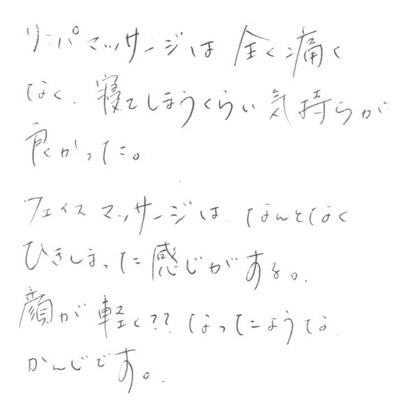 リンパマッサージは全く痛く
なく、寝てしまうくらい気持ちが
良かった。
フェイスマッサージは、なんとなく
ひきしまった感じがする。
顔が軽く??なったような
かんじです。